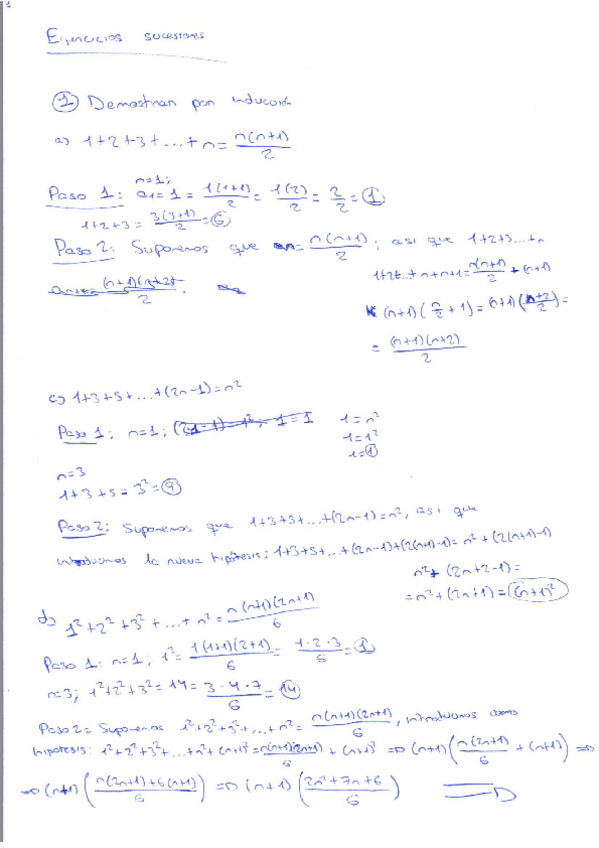 1
Ejercicios sucesiones
① Demostrar por inducción
a) 1+2+3+...+n = n(n+1)/2
n=1;
Paso 1: a₁=1 = 1(1+1)/2 = 1(2)/2 = 2/2 = ①
1+2+3 = 3(3+1)/2 = ⑥
Paso 2: Suponemos que an = n(n+1)/2; así que 1+2+3...+n
1+2+...+n+n+1 = n(n+1)/2 + (n+1)
(n+1)(n+2)/2.
(n+1)(n/2 + 1) = (n+1)(n+2/2) =
= (n+1)(n+2)/2
c) 1+3+5+...+(2n-1)=n²
Paso 1: n=1; (2·1-1)=1²; 1=1
1=n²
1=1²
1=①
n=3
1+3+5=3²=⑨
Paso 2: Suponemos que 1+3+3+...+(2n-1)=n², así que
introducimos la nueva hipótesis: 1+3+5+...+(2n-1)+(2(n+1)-1)= n²+(2(n+1)-1)
n²+(2n+2-1)=
=n²+(2n+1)=(n+1)²
d) 1²+2²+3²+...+n² = n(n+1)(2n+1)/6
Paso 1: n=1; 1² = 1(1+1)(2+1)/6 = 1·2·3/6 = ①
n=3; 1²+2²+3²=14= 3·4·7/6 = ⑭
Paso 2= Suponemos 1²+2²+3²+...+n²= n(n+1)(2n+1)/6, introducimos como
hipótesis: 1²+2²+3²+...+n²+(n+1)²= n(n+1)(2n+1)/6 + (n+1)² => (n+1)(n(2n+1)/6 + (n+1)) =>
=> (n+1)(n(2n+1)+6(n+1)/6) => (n+1)(2n²+7n+6/6) =>